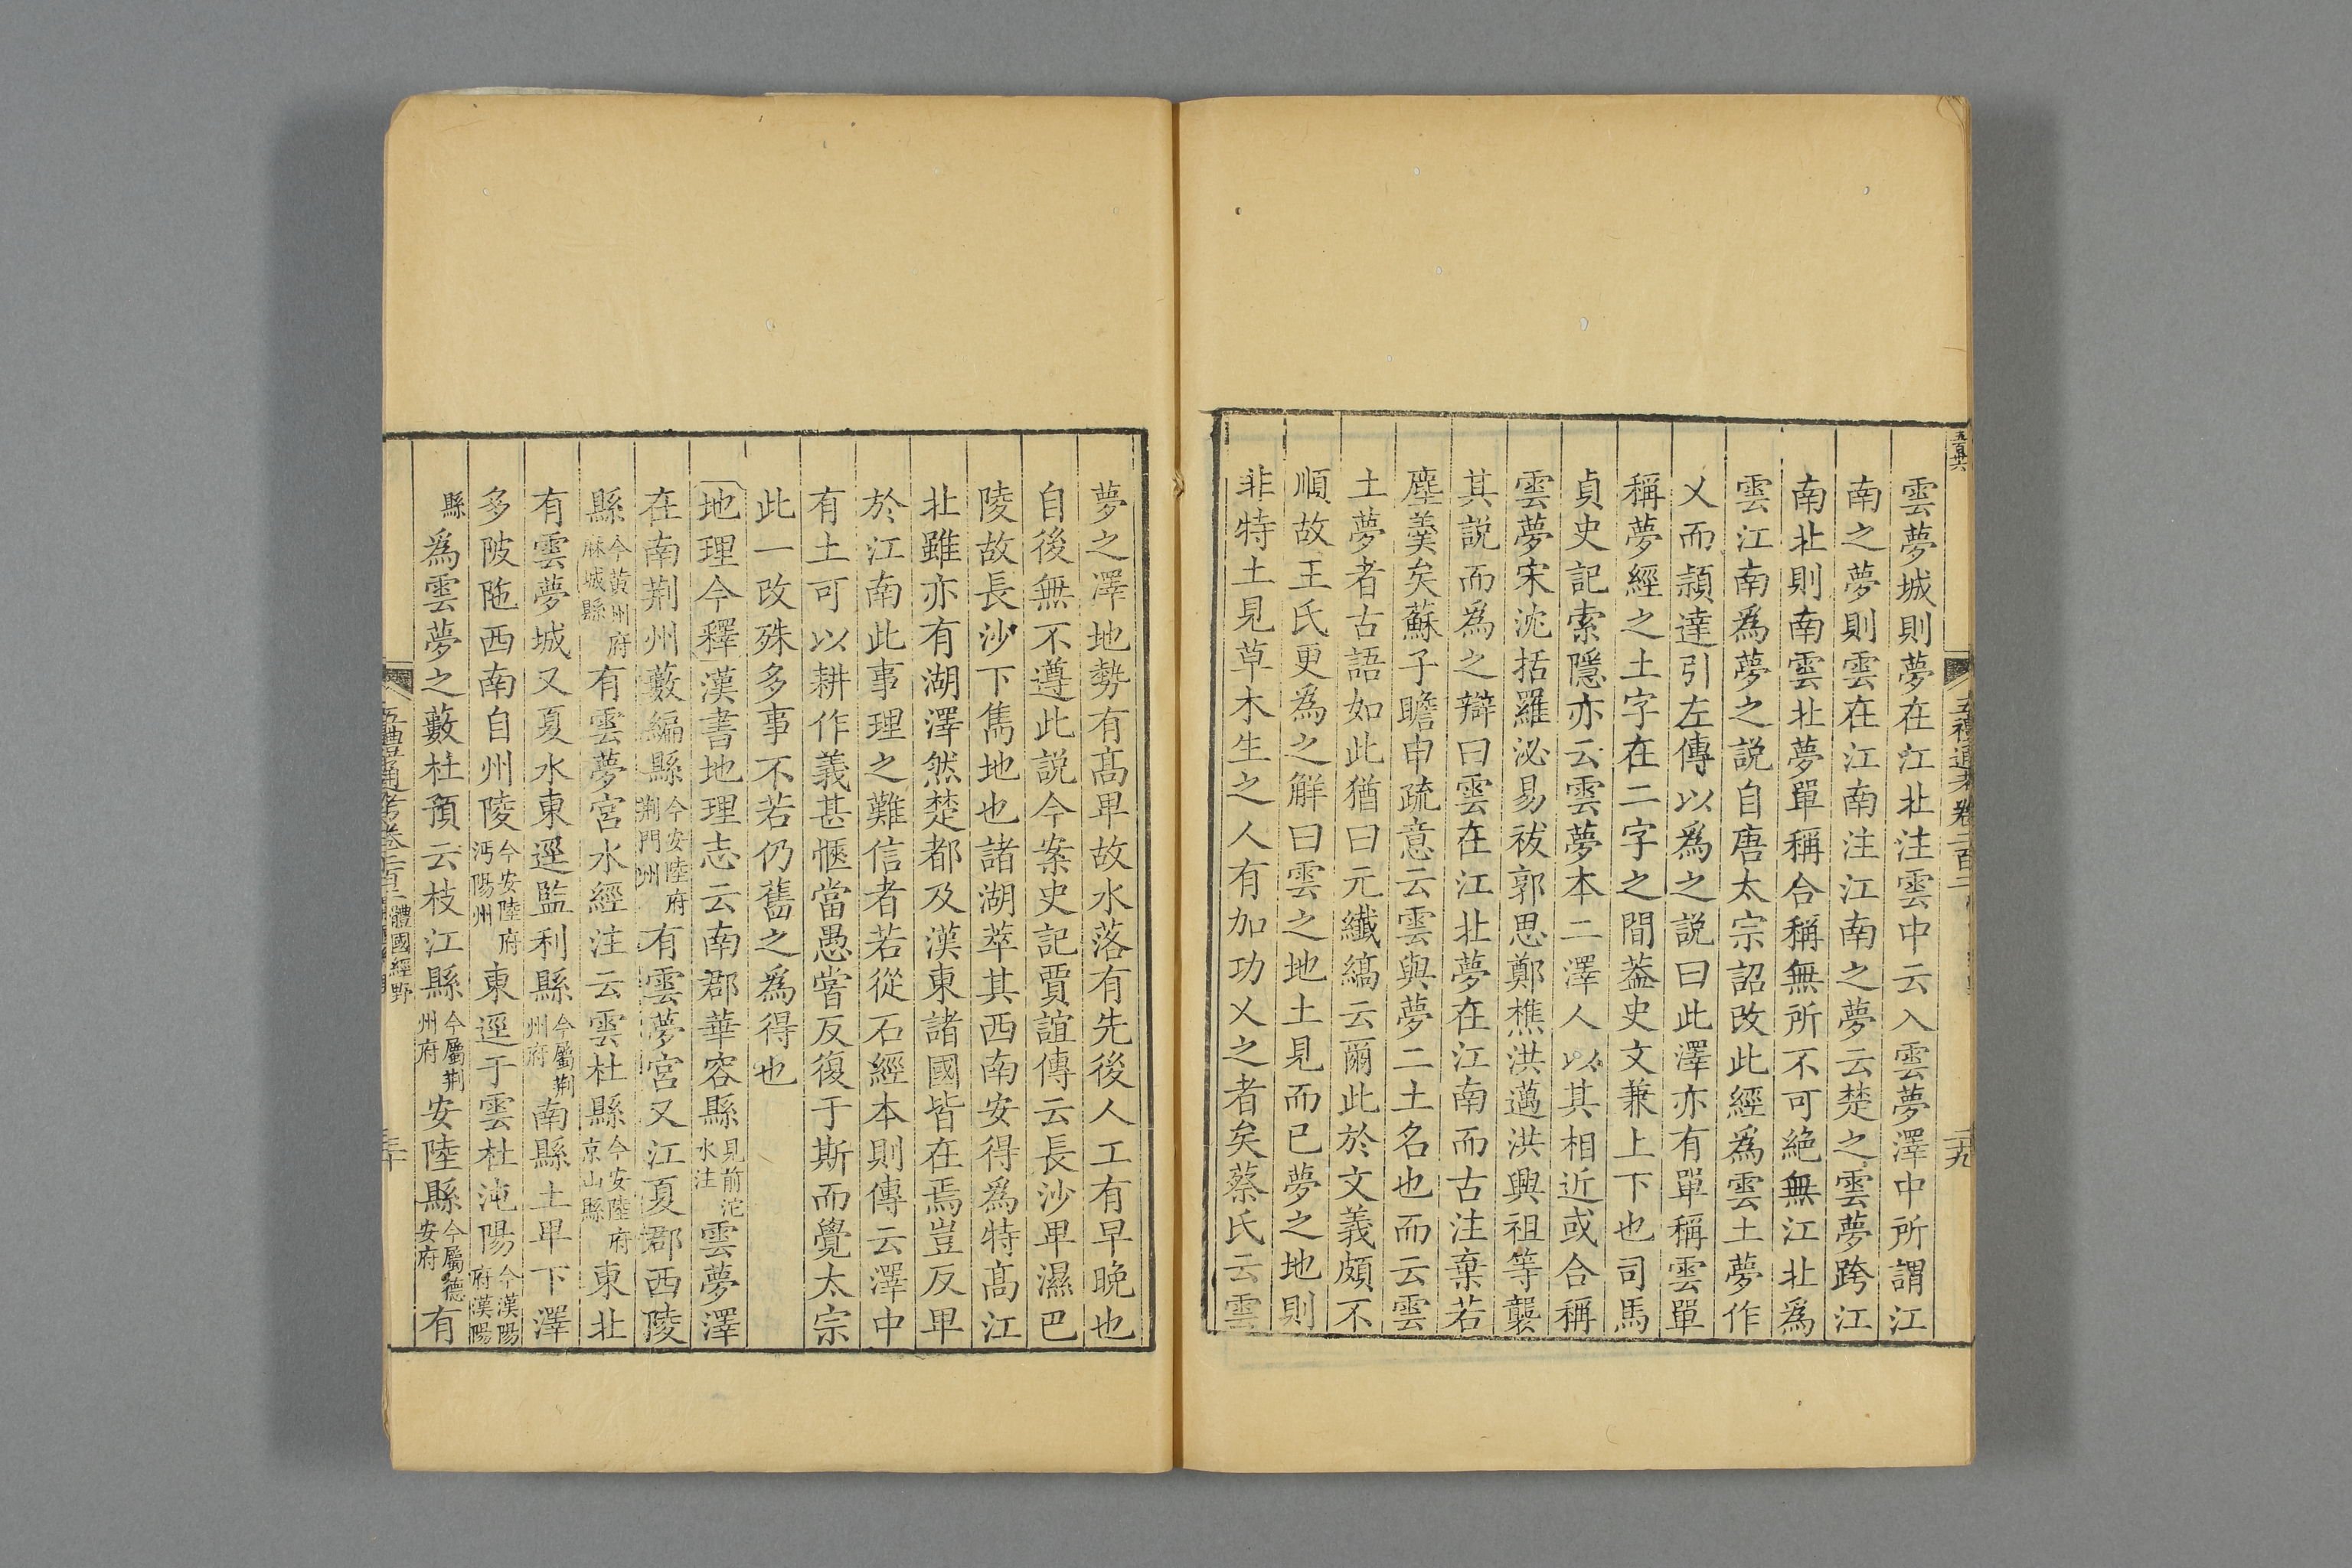 五百廿六
五禮通考卷二百二
二九
雲夢城則夢在江北注雲中云入雲夢澤中所謂江
南之夢則雲在江南注江南之夢云楚之雲夢跨江
南北則南雲北夢單稱合稱無所不可絶無江北爲
雲江南爲夢之説自唐太宗詔改此經爲雲土夢作
乂而頴達引左傳以爲之説曰此澤亦有單稱雲單
稱夢經之土字在二字之間葢史文兼上下也司馬
貞史記索隱亦云雲夢本二澤人以其相近或合稱
雲夢宋沈括羅泌易祓郭思鄭樵洪邁洪興祖等襲
其説而爲之辯曰雲在江北夢在江南而古注棄若
塵羹矣蘇子瞻申疏意云雲與夢二土名也而云雲
土夢者古語如此猶曰元纖縞云爾此於文義頗不
順故王氏更爲之解曰雲之地土見而已夢之地則
非特土見草木生之人有加功乂之者矣蔡氏云雲
夢之澤地勢有髙卑故水落有先後人工有早晚也
自後無不遵此説今案史記賈誼傳云長沙卑濕巴
陵故長沙下雋地也諸湖萃其西南安得爲特髙江
北雖亦有湖澤然楚都及漢東諸國皆在焉豈反卑
於江南此事理之難信者若從石經本則傳云澤中
有土可以耕作義甚愜當愚嘗反復于斯而覺太宗
此一改殊多事不若仍舊之爲得也
地理今釋漢書地理志云南郡華容縣見前沱水注雲夢澤
在南荆州藪編縣今安陸府荆門州有雲夢宮又江夏郡西陵
縣今黄州府麻城縣有雲夢宮水經注云雲杜縣今安陸府京山縣東北
有雲夢城又夏水東逕監利縣今屬荆州府南縣土卑下澤
多陂陁西南自州陵今安陸府沔陽州東逕于雲杜沌陽今漢陽府漢陽
縣爲雲夢之藪杜預云枝江縣今屬荆州府安陸縣今屬德安府有
五禮通考卷二百二
體國經野
三十